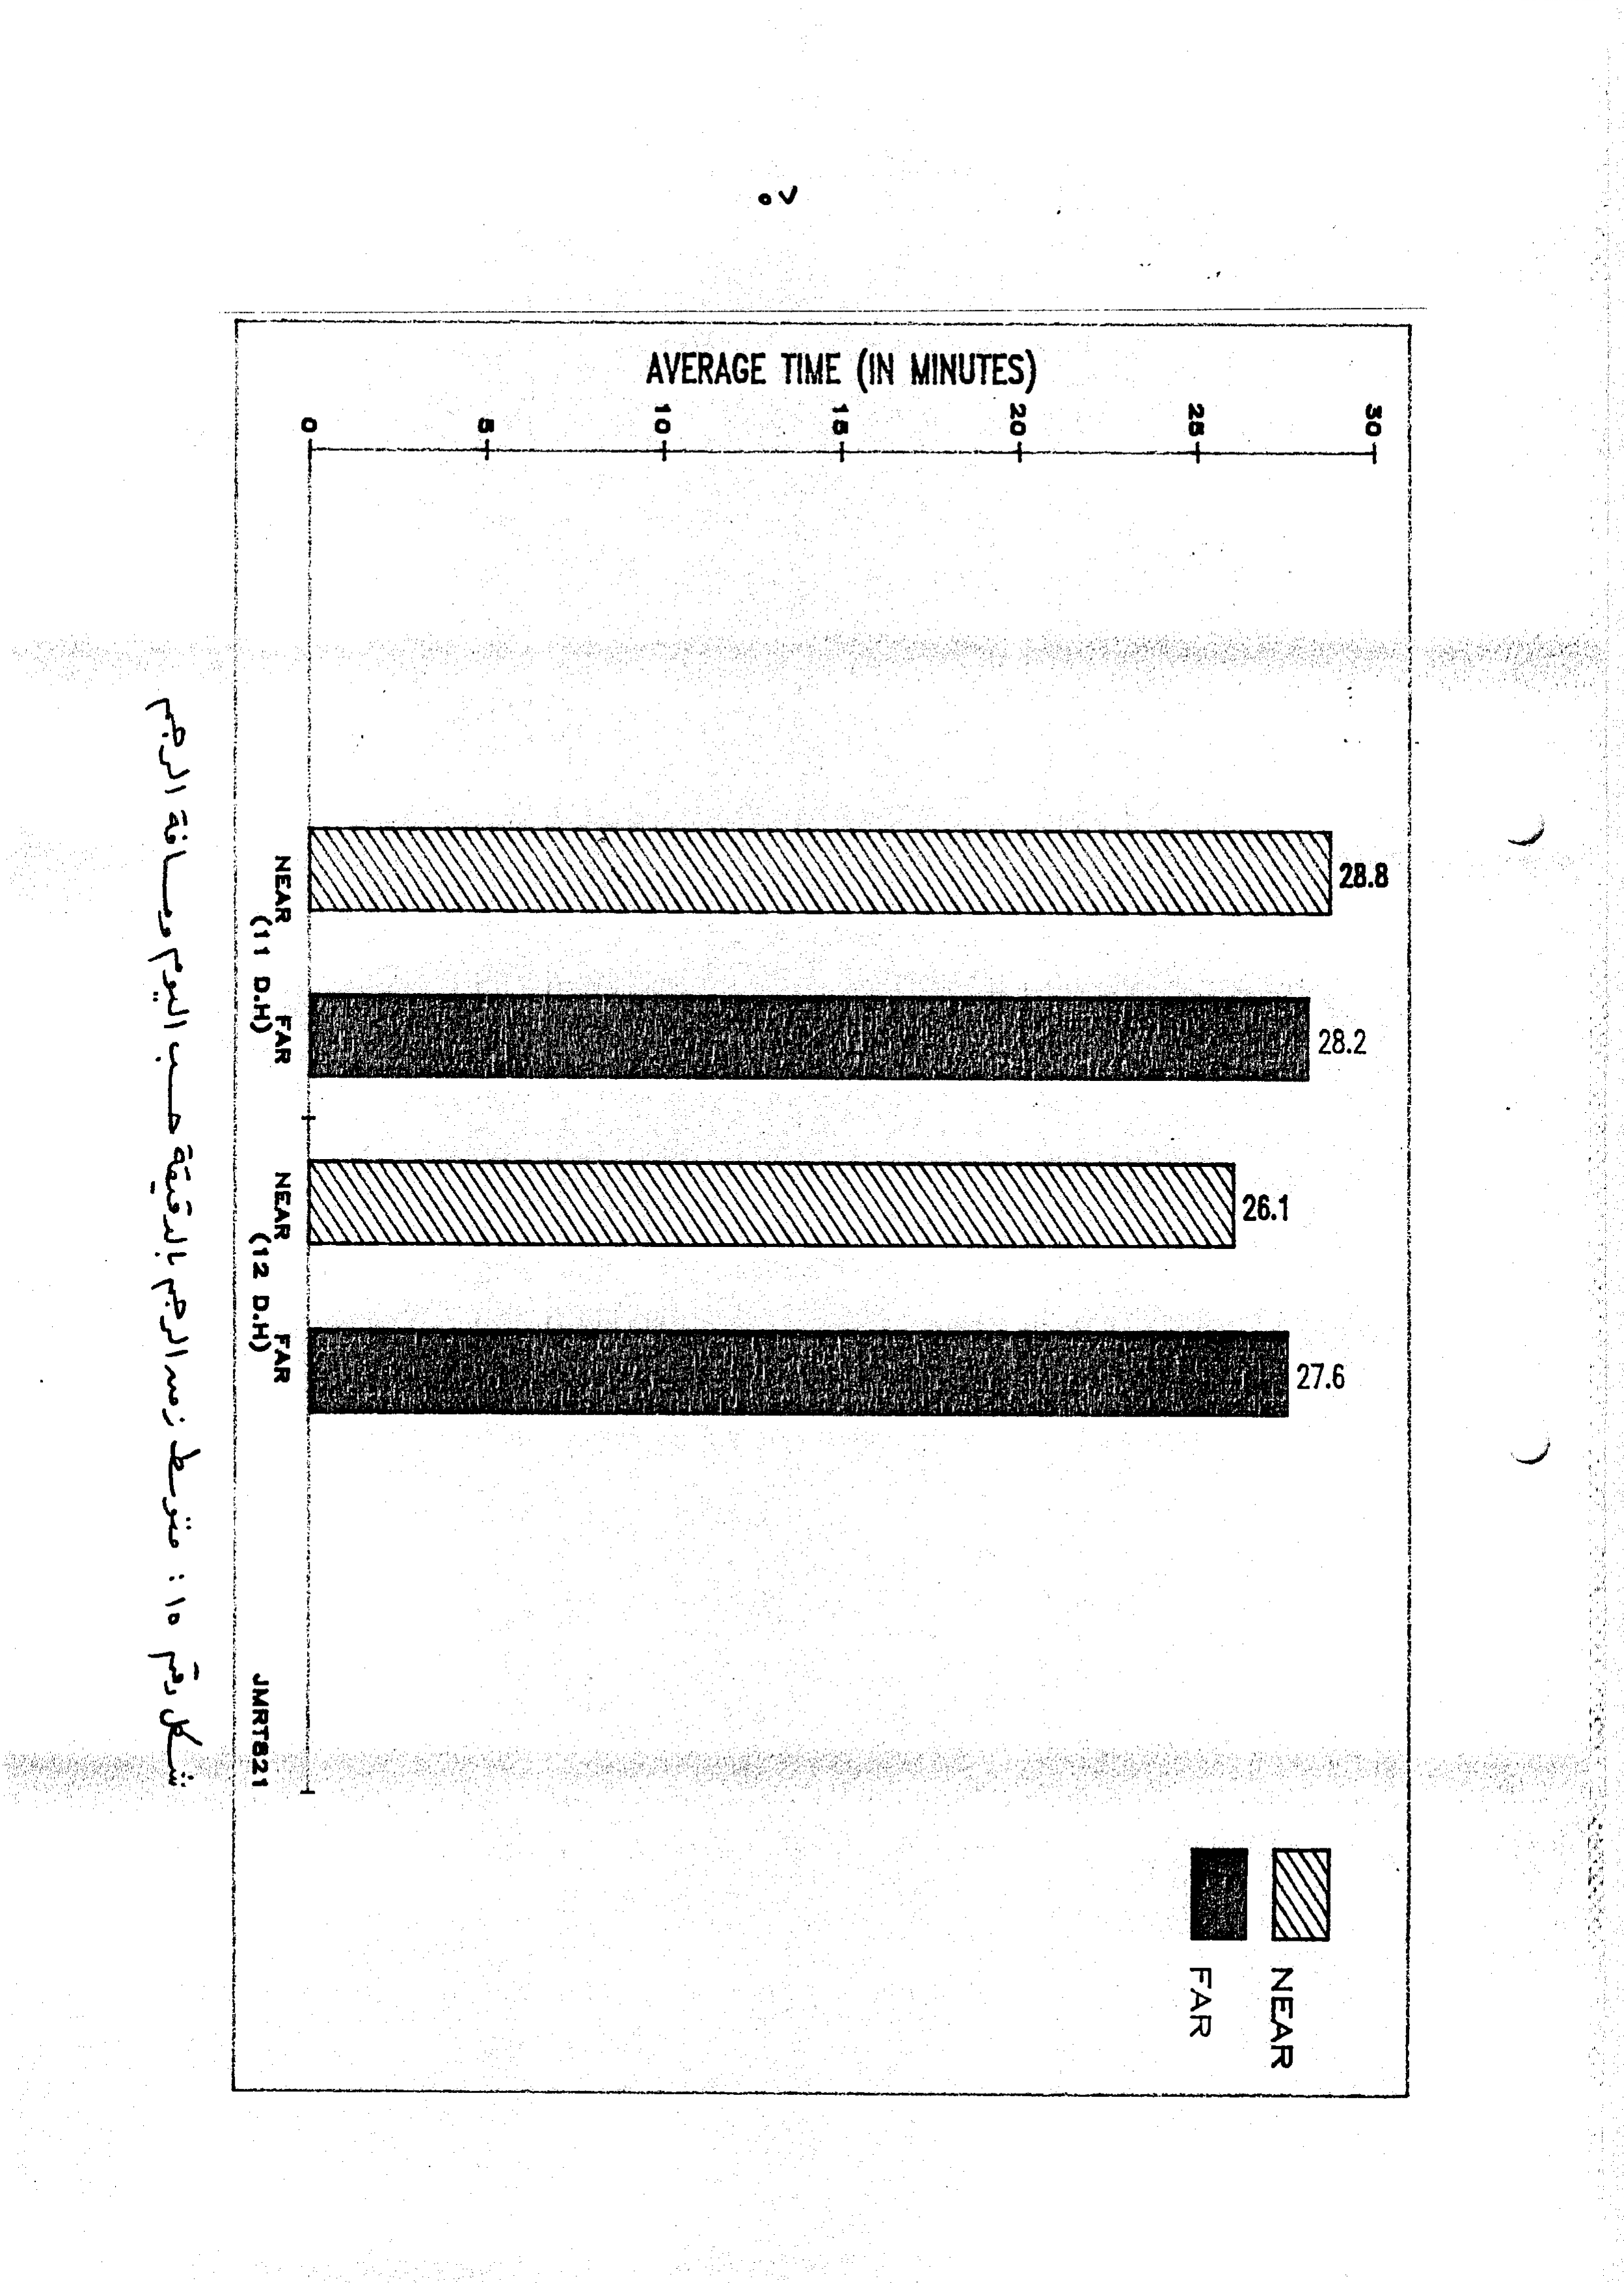 ٥٧
AVERAGE TIME (IN MINUTES)
30
25
20
15
10
5
0
28.8
28.2
26.1
27.6
NEAR FAR NEAR FAR
(11 D.H) (12 D.H)
JMRT821
NEAR
FAR
شكل رقم ١٥ : متوسط زمن الرجم بالدقيقة حسب اليوم ومسافة الرجم